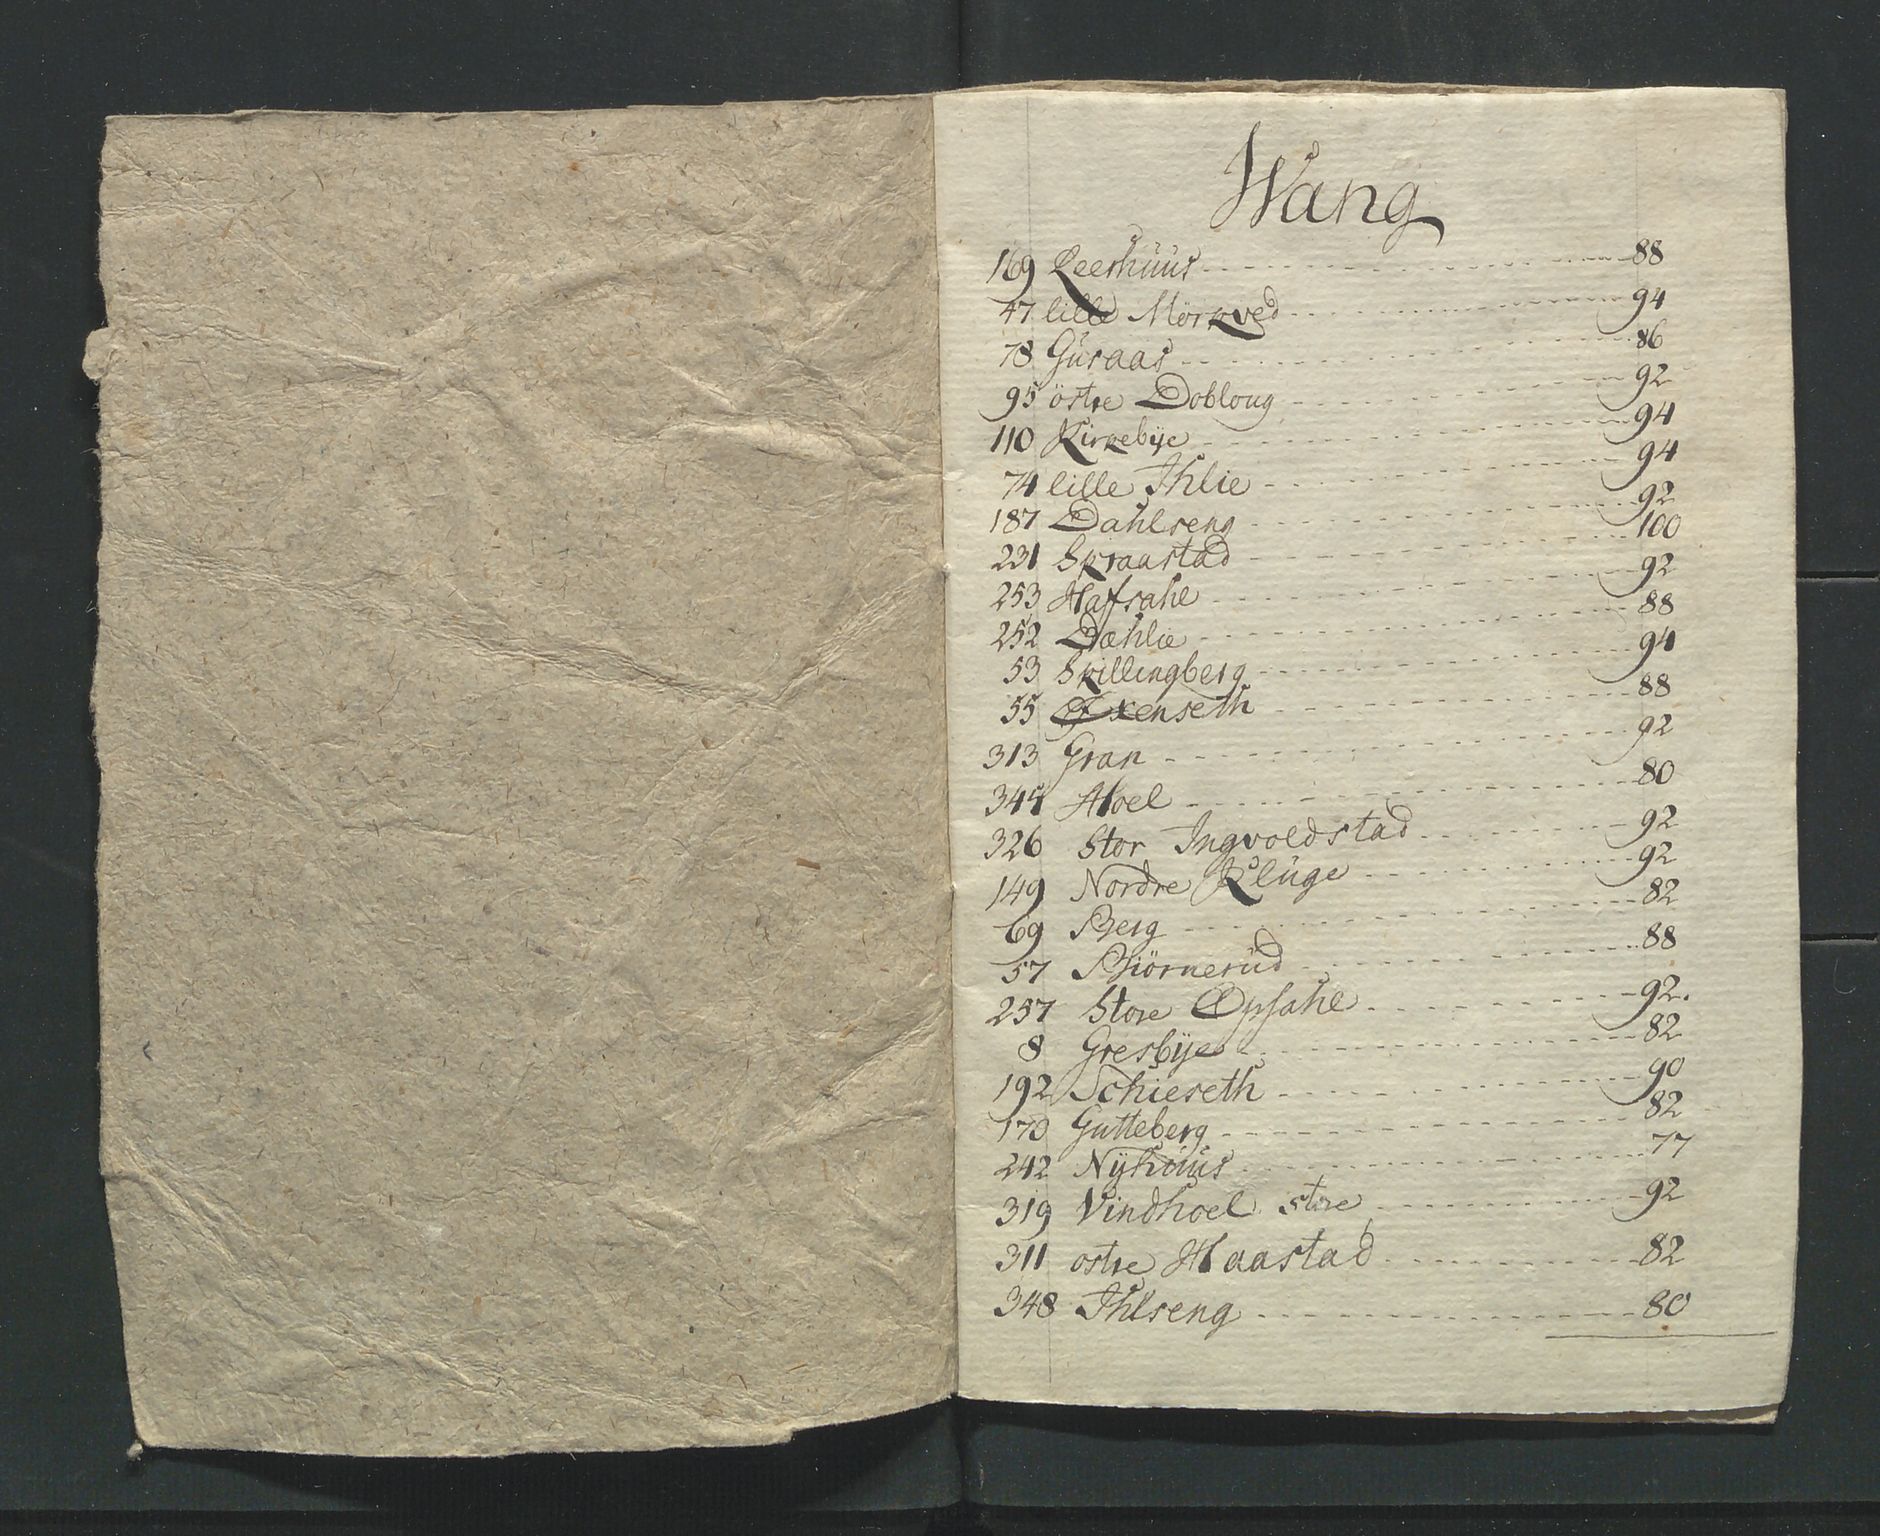 Wang
169 Leerhuus 88
47 lille Mörkved 94
78 Guraas 86
95 östre Dobloug 92
110 Kirkebÿe 94
74 lille Ihlie 94
187 Dahlseng 92
231 Skraastad 100
253 Haffsahl 92
252 Dæhlie 88
53 Skillingberg 94
55 Oxenseth 88
313 Gran 92
344 Hoel 80
326 Stor Ingvoldstad 92
149 Nordre Kluge 92
69 Berg 82
57 Biörnerud 88
257 Store Opsahl 92.
8 Gresbÿe 82
192 Schiereth 90
170 Gutteberg 82
242 Nÿhuus 77
319 Vindhoel store 92
311 ostre Haastad 82
348 Ihlseng 80